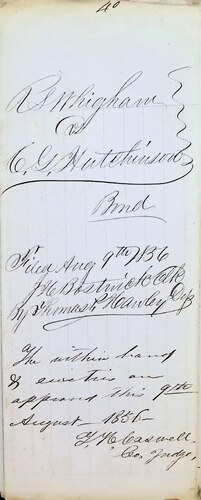 40
R S Whigham
vs
C. G. Hutchinson
Bond
Filed Aug 9th 1856
J H Bostwick Clk
By Thomas P Hawley Dep
The within bond
& sureties are
approved this 9th
August 1856
T. H. Caswell
Co. Judge,